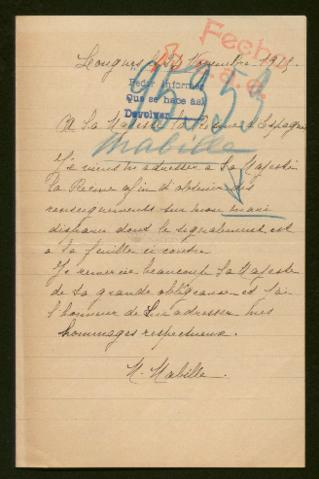 Novembre 191
Fecho
Pedir informes
Que se hace así
Devolver
95353
A Sa Majesté la Reine d'Espagne
Mabille
Je viens m'adresser à Sa Majesté
la Reine afin d'obtenir des
renseignements sur mon mari
disparu dont le signalement est
à la feuille ci contre.
Je remercie beaucoup Sa Majesté
de Sa grande obligeance et j'ai
l'honneur de Lui adresser mes
hommages respectueux.
M. Mabille.